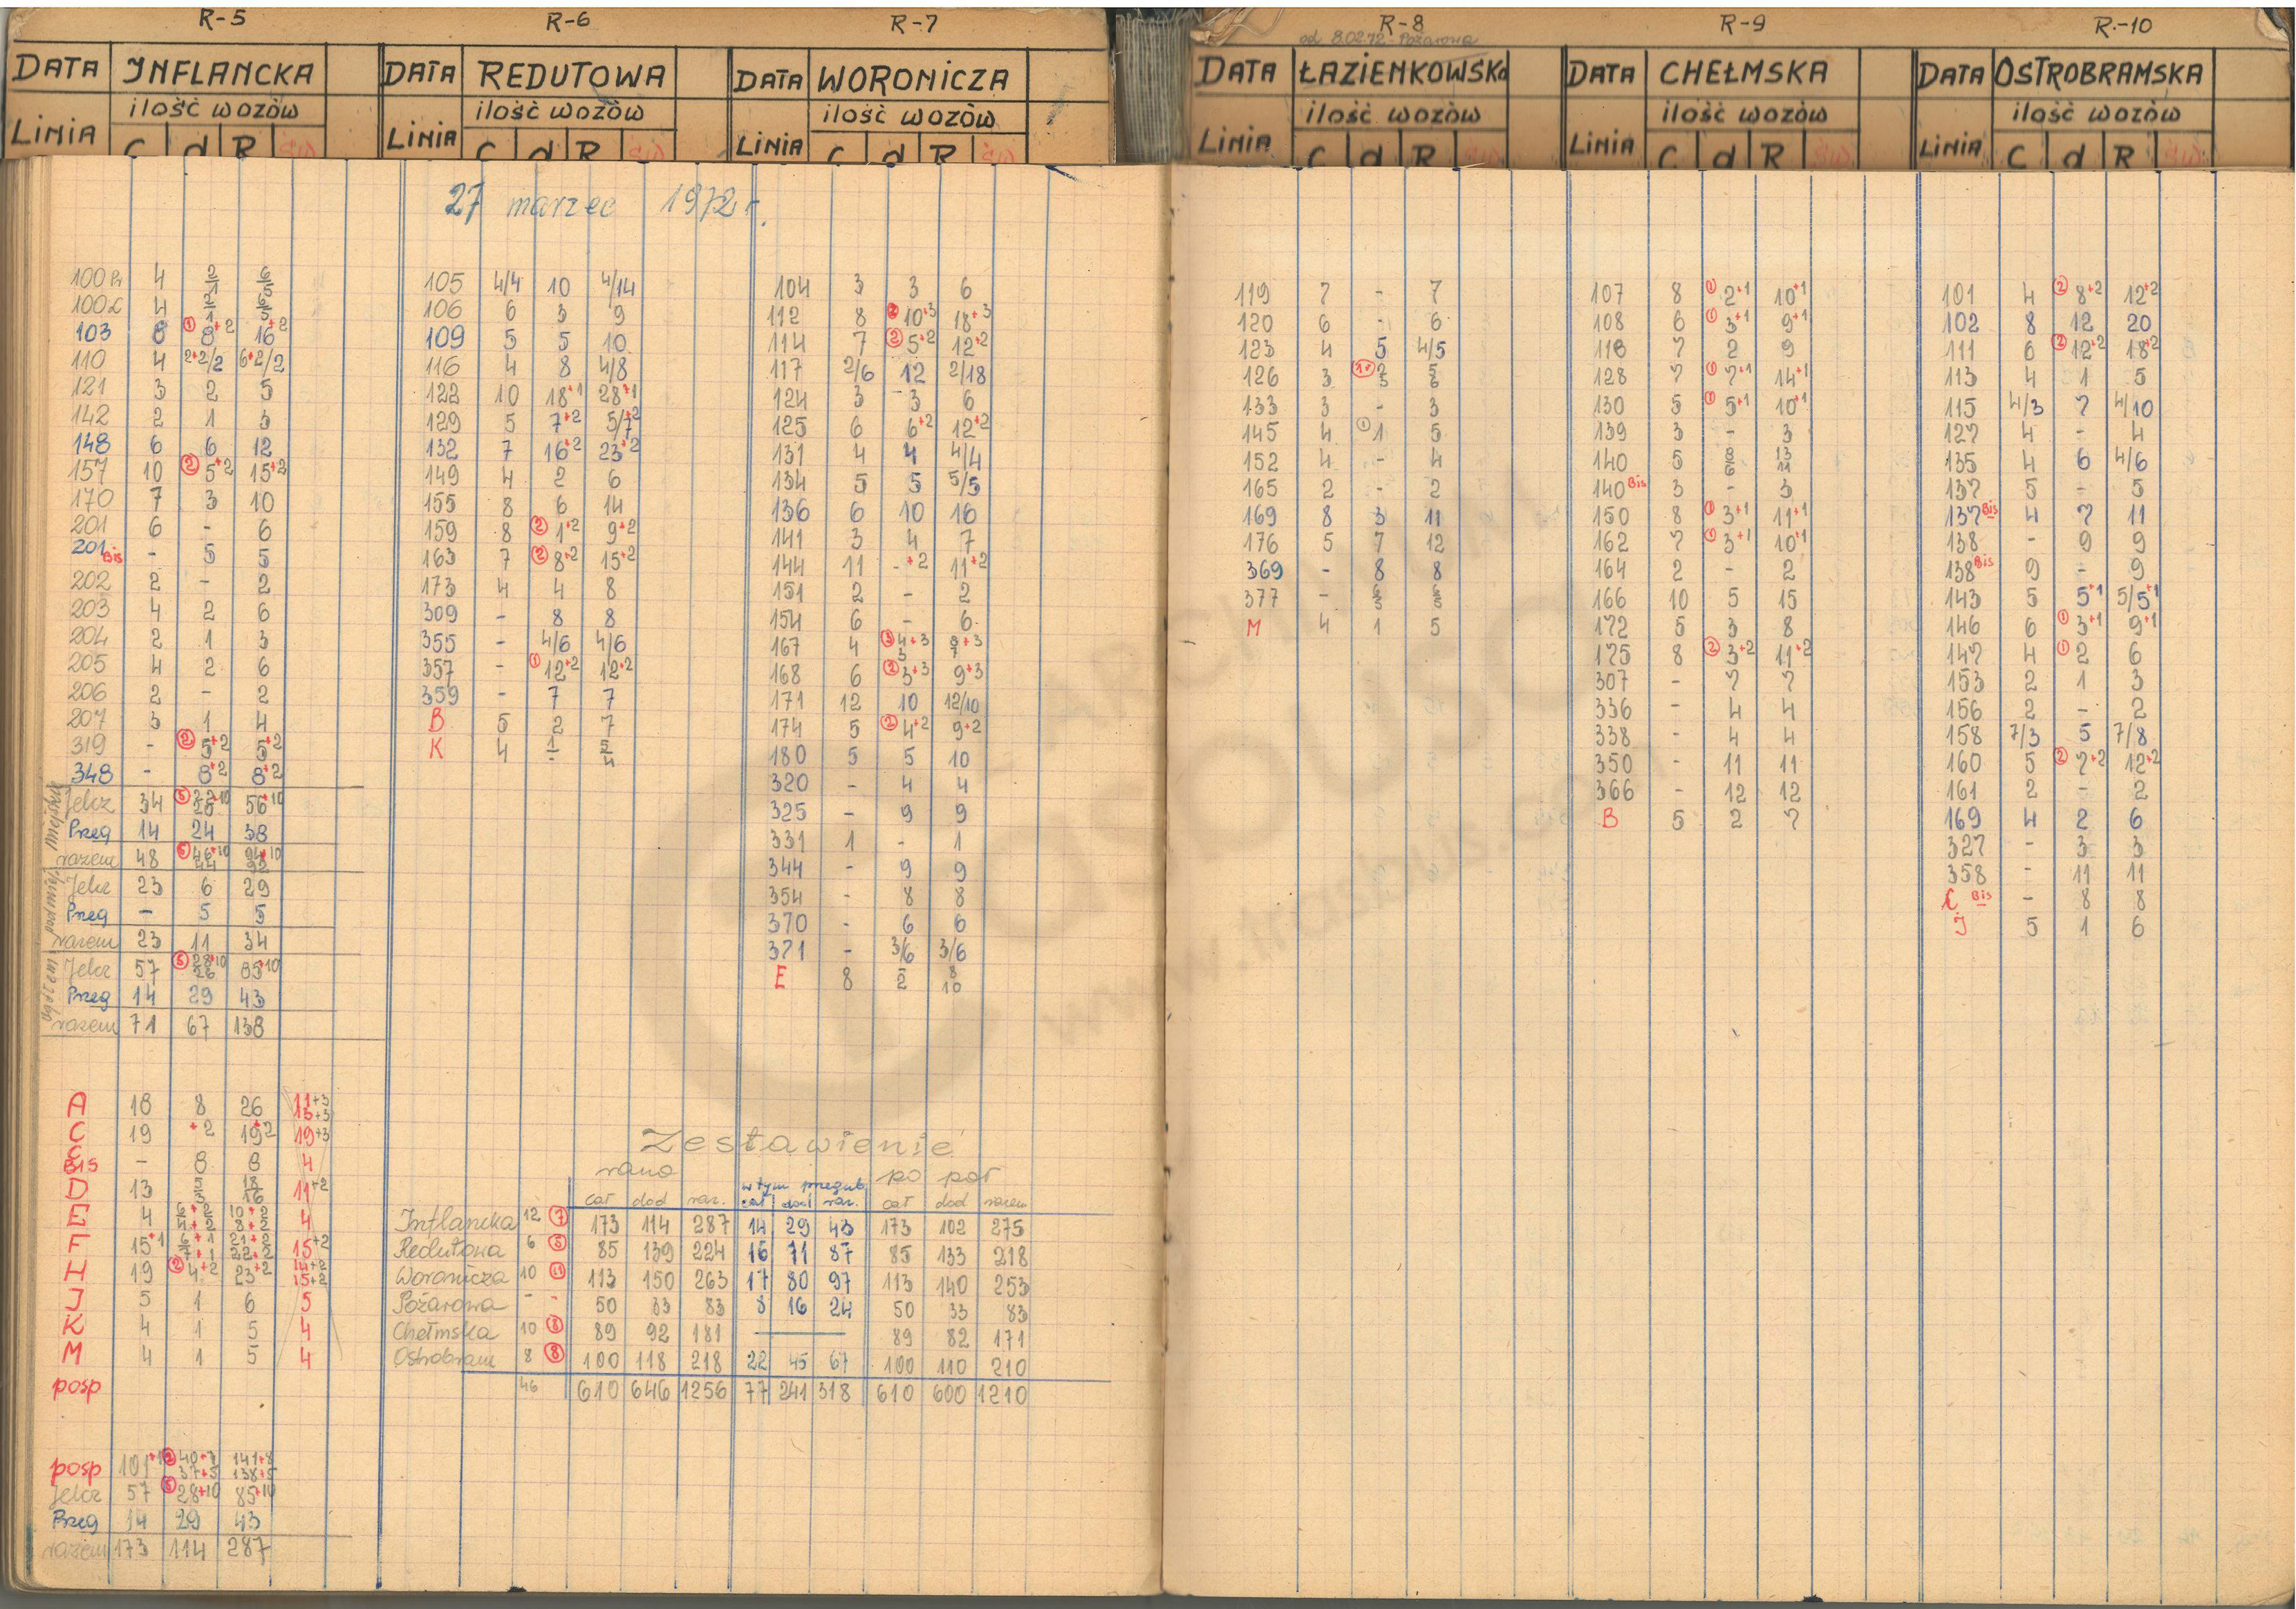 R-5
DATA INFLANCKA
ilość wozów
LINIA C d R św
100 4
100 4
103 8 ① 8+2 16+2
110 4 2+2/2 6+2/2
121 3 2 5
142 2 1 3
148 6 6 12
157 10 ② 5+2 15+2
170 7 3 10
201 6 - 6
201 Bis - 5 5
202 2 - 2
203 4 2 6
204 2 1 3
205 4 2 6
206 2 - 2
207 3 1 4
319 - ② 5+2 5+2
348 - 8+2 8+2
Jelcz 34 56+10
Przeg 14 24 38
razem 48
Jelcz 23 6 29
Przeg - 5 5
razem 23 11 34
Jelcz 57 85+10
Przeg 14 29 43
razem 71 67 138
A 18 8 26 11+3 13+3
C 19 +2 19+2 19+3
C BIS - 8 8 4
D 13 18/16 11+2
E 4 6+2 4+2 10+2 8+2 4
F 15+1 6+1 7+1 21+2 22+2 15+2
H 19 ② 4+2 23+2 14+2 15+2
J 5 1 6 5
K 4 1 5 4
M 4 1 5 4
posp
posp 101 40+3 37+5 141+8 138+5
Jelcz 57 ⑤ 28+10 85+10
Przeg 14 29 43
razem 173 114 287
R-6
DATA REDUTOWA
ilość wozów
LINIA C d R św
27 marzec 1972 r.
105 4/4 10 4/14
106 6 3 9
109 5 5 10
116 4 8 4/8
122 10 18+1 28+1
129 5 7+2 5/7+2
132 7 16+2 23+2
149 4 2 6
155 8 6 14
159 8 ② 1+2 9+2
163 7 ② 8+2 15+2
173 4 4 8
309 - 8 8
355 - 4/6 4/6
357 - ① 12+2 12+2
359 - 7 7
B 5 2 7
K 4 1/- 5/4
R-7
DATA WORONICZA
ilość wozów
LINIA C d R św
104 3 3 6
112 8 10+3 18+3
114 7 ② 5+2 12+2
117 2/6 12 2/18
124 3 3 6
125 6 6+2 12+2
131 4 4 4/4
134 5 5 5/5
136 6 10 16
141 3 4 7
144 11 -+2 11+2
151 2 - 2
154 6 - 6
167 4 ③ 4+3/3 8+3/7
168 6 ② 3+3 9+3
171 12 10 12/10
174 5 ② 4+2 9+2
180 5 5 10
320 - 4 4
325 - 9 9
331 1 - 1
344 - 9 9
354 - 8 8
370 - 6 6
371 - 3/6 3/6
E 8 -/2 8/10
Zestawienie
rano w tym przegub. po poł
cał dod raz. cał dod raz. cał dod razem
Inflancka 12 ⑦ 173 114 287 14 29 43 173 102 275
Redutowa 6 ⑤ 85 139 224 16 71 87 85 133 218
Woronicza 10 ⑪ 113 150 263 17 80 97 113 140 253
Pożarowa - - 50 33 83 8 16 24 50 33 83
Chełmska 10 ⑧ 89 92 181 — 89 82 171
Ostrobram 8 ⑧ 100 118 218 22 45 67 100 110 210
46 610 646 1256 77 241 318 610 600 1210
R-8
od 8.02.72 - Pożarowa
DATA ŁAZIENKOWSKA
ilość wozów
LINIA C d R św
119 7 - 7
120 6 - 6
123 4 5 4/5
126 3
133 3 - 3
145 4 ① 1 5
152 4 - 4
165 2 - 2
169 8 3 11
176 5 7 12
369 - 8 8
377 - 6/5 6/5
M 4 1 5
R-9
DATA CHEŁMSKA
ilość wozów
LINIA C d R św
107 8 ① 2+1 10+1
108 6 ① 3+1 9+1
118 7 2 9
128 7 ① 7+1 14+1
130 5 ① 5+1 10+1
139 3 - 3
140 5 8/6 13/11
140 Bis 3 - 3
150 8 ① 3+1 11+1
162 7 ① 3+1 10+1
164 2 - 2
166 10 5 15
172 5 3 8
175 8 ② 3+2 11+2
307 - 7 7
336 - 4 4
338 - 4 4
350 - 11 11
366 - 12 12
B 5 2 7
R.-10
DATA OSTROBRAMSKA
ilość wozów
LINIA C d R św
101 4 ② 8+2 12+2
102 8 12 20
111 6 ② 12+2 18+2
113 4 1 5
115 4/3 7 4/10
127 4 - 4
135 4 6 4/6
137 5 - 5
137 Bis 4 7 11
138 - 9 9
138 Bis 9 - 9
143 5 5+1 5/5+1
146 6 ① 3+1 9+1
147 4 ① 2 6
153 2 1 3
156 2 - 2
158 7/3 5 7/8
160 5 ② 7+2 12+2
161 2 - 2
169 4 2 6
327 - 3 3
358 - 11 11
C Bis - 8 8
J 5 1 6